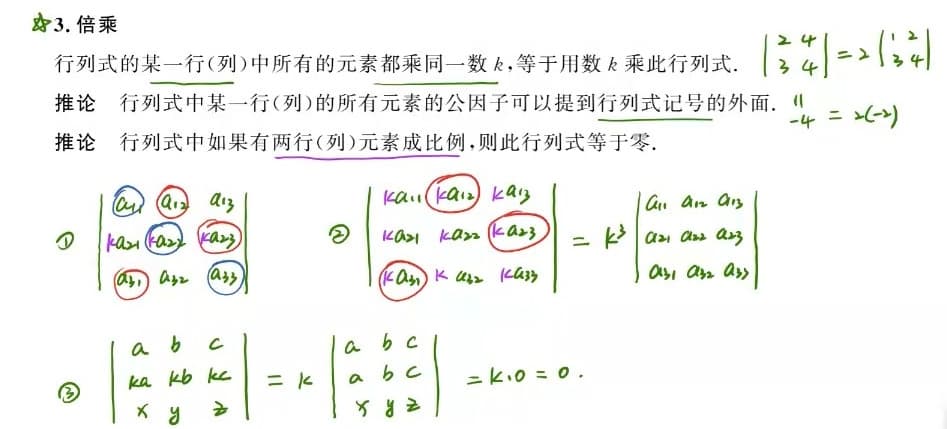 ☆3. 倍乘
行列式的某一行(列)中所有的元素都乘同一数 k,等于用数 k 乘此行列式. |2 4; 3 4| = 2|1 2; 3 4|
推论 行列式中某一行(列)的所有元素的公因子可以提到行列式记号的外面. || -4 = 2(-2)
推论 行列式中如果有两行(列)元素成比例,则此行列式等于零.
a₁₁ a₁₂ a₁₃ ka₁₁ ka₁₂ ka₁₃ a₁₁ a₁₂ a₁₃
① ka₂₁ ka₂₂ ka₂₃ ② ka₂₁ ka₂₂ ka₂₃ = k³ a₂₁ a₂₂ a₂₃
a₃₁ a₃₂ a₃₃ ka₃₁ ka₃₂ ka₃₃ a₃₁ a₃₂ a₃₃
a b c a b c
③ ka kb kc = k a b c = k·0 = 0.
x y z x y z